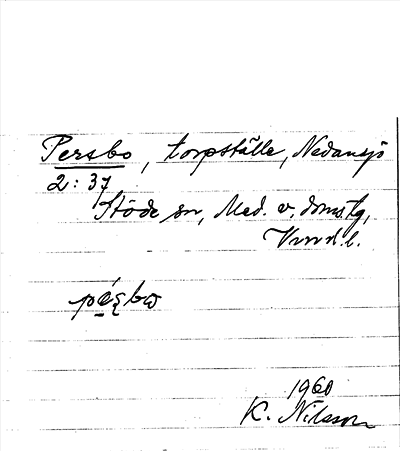 Persbo, torpställe, Nedansjö
2:37
Stöde sn, Med. v. doms.lg,
Vrnd.l.
pæ̀ʂbω
1960
K. Nilsson